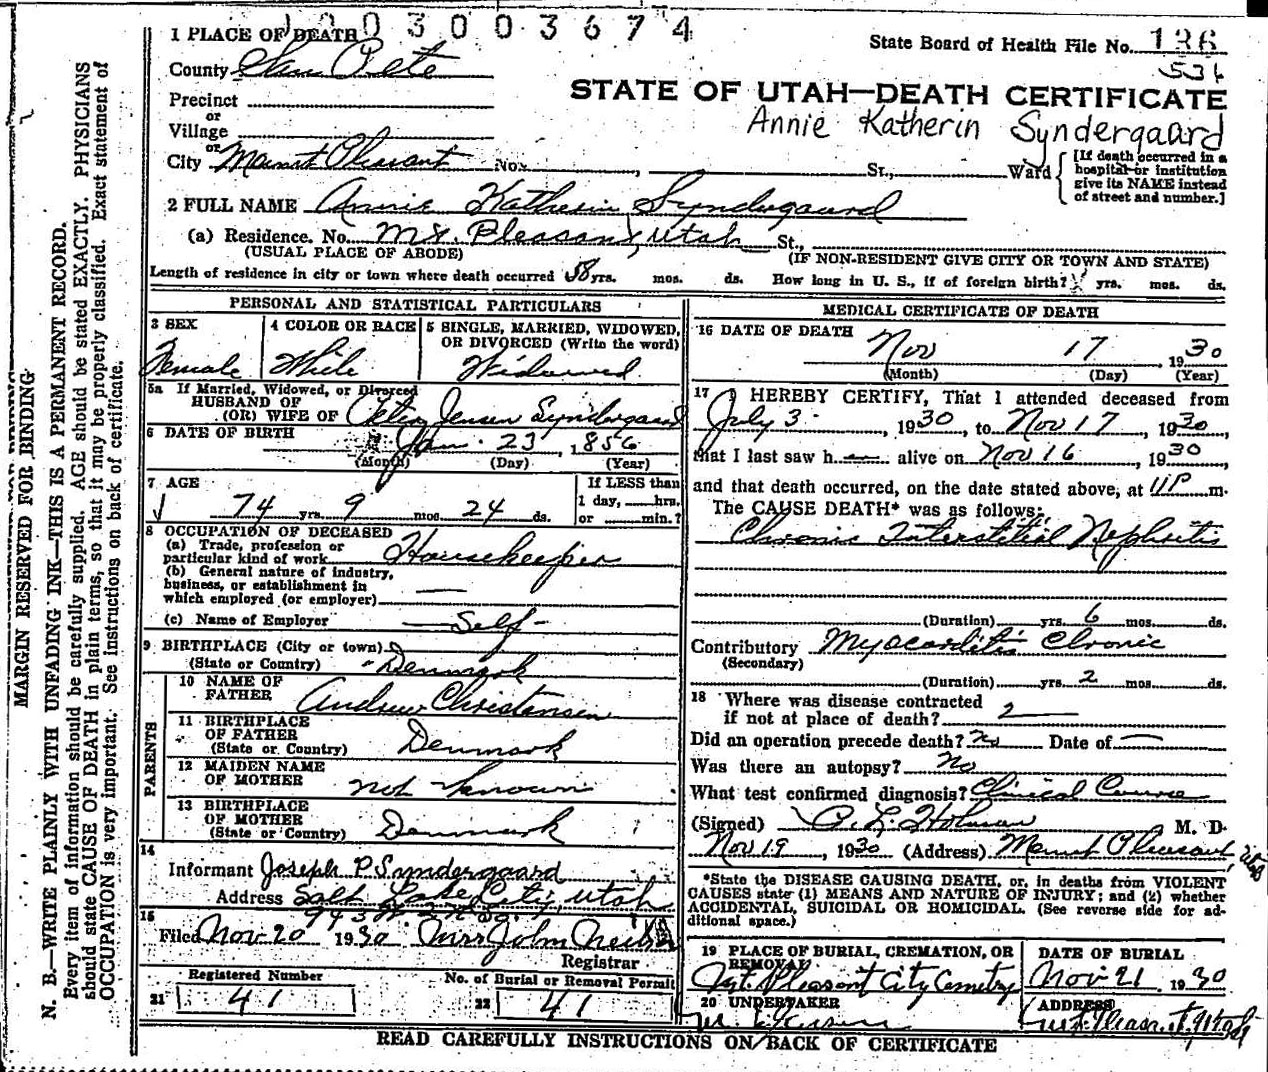 1003003674
1 PLACE OF DEATH
State Board of Health File No. 136
531
County San Pete
STATE OF UTAH—DEATH CERTIFICATE
Precinct
or
Annie Katherin Syndergaard
Village
or
City Mount Pleasant No. , St., Ward
[If death occurred in a hospital or institution give its NAME instead of street and number.]
2 FULL NAME Annie Katherin Syndergaard
(a) Residence. No. Mt. Pleasant, Utah St.,
(USUAL PLACE OF ABODE) (IF NON-RESIDENT GIVE CITY OR TOWN AND STATE)
Length of residence in city or town where death occurred 58 yrs. mos. ds. How long in U. S., if of foreign birth? yrs. mos. ds.
PERSONAL AND STATISTICAL PARTICULARS
3 SEX
Female
4 COLOR OR RACE
White
5 SINGLE, MARRIED, WIDOWED, OR DIVORCED (Write the word)
Widowed
5a If Married, Widowed, or Divorced
HUSBAND OF
(OR) WIFE OF Peter Jensen Syndergaard
6 DATE OF BIRTH Jan. 23, 1856
(Month) (Day) (Year)
7 AGE
74 yrs. 9 mos. 24 ds.
If LESS than
1 day, hrs.
or min.?
8 OCCUPATION OF DECEASED
(a) Trade, profession or
particular kind of work Housekeeper
(b) General nature of industry,
business, or establishment in
which employed (or employer) —
(c) Name of Employer — Self —
9 BIRTHPLACE (City or town)
(State or Country) Denmark
PARENTS
10 NAME OF FATHER Andrew Christansen
11 BIRTHPLACE OF FATHER
(State or Country) Denmark
12 MAIDEN NAME OF MOTHER not known
13 BIRTHPLACE OF MOTHER
(State or Country) Denmark
14
Informant Joseph P Syndergaard
Address Salt Lake City, Utah
15
Filed Nov 20 1930 Mrs John Neilson
Registrar
Registered Number
21 41
No. of Burial or Removal Permit
22 41
MEDICAL CERTIFICATE OF DEATH
16 DATE OF DEATH
Nov 17, 1930
(Month) (Day) (Year)
17 I HEREBY CERTIFY, That I attended deceased from
July 3, 1930, to Nov 17, 1930,
that I last saw h alive on Nov 16, 1930
and that death occurred, on the date stated above, at 11 P m.
The CAUSE DEATH* was as follows:
Chronic Interstitial Nephritis
(Duration) yrs. 6 mos. ds.
Contributory Myocarditis Chronic
(Secondary)
(Duration) yrs. 2 mos. ds.
18 Where was disease contracted
if not at place of death?
Did an operation precede death? No Date of —
Was there an autopsy? No
What test confirmed diagnosis? Clinical Course
(Signed) P. L. Holman M. D.
Nov 19, 1930 (Address) Mount Pleasant, Utah
*State the DISEASE CAUSING DEATH, or, in deaths from VIOLENT
CAUSES state (1) MEANS AND NATURE OF INJURY; and (2) whether
ACCIDENTAL, SUICIDAL OR HOMICIDAL. (See reverse side for ad-
ditional space.)
19 PLACE OF BURIAL, CREMATION, OR REMOVAL
Mt. Pleasant City Cemetry
DATE OF BURIAL
Nov 21 1930
20 UNDERTAKER
ADDRESS
Mt. Pleasant, Utah
READ CAREFULLY INSTRUCTIONS ON BACK OF CERTIFICATE
MARGIN RESERVED FOR BINDING
N. B.—WRITE PLAINLY WITH UNFADING INK—THIS IS A PERMANENT RECORD.
Every item of information should be carefully supplied. AGE should be stated EXACTLY. PHYSICIANS
should state CAUSE OF DEATH in plain terms, so that it may be properly classified. Exact statement of
OCCUPATION is very important. See instructions on back of certificate.